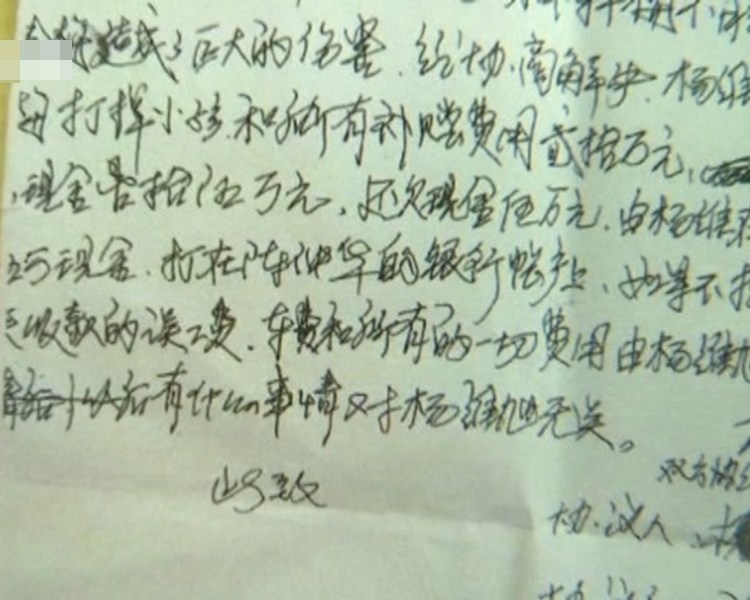 造成了巨大的伤害.经协商解决.杨维
打掉小孩和所有补赔费用贰拾万元,
现金是拾伍万元,还欠现金伍万元.由杨维
现金.打在陈仲华的银行帐户上、如果不
收款的误工费.车费和所有的一切费用由杨维
以后有什么事情又于杨维旭无关。
此致
双方
协议人